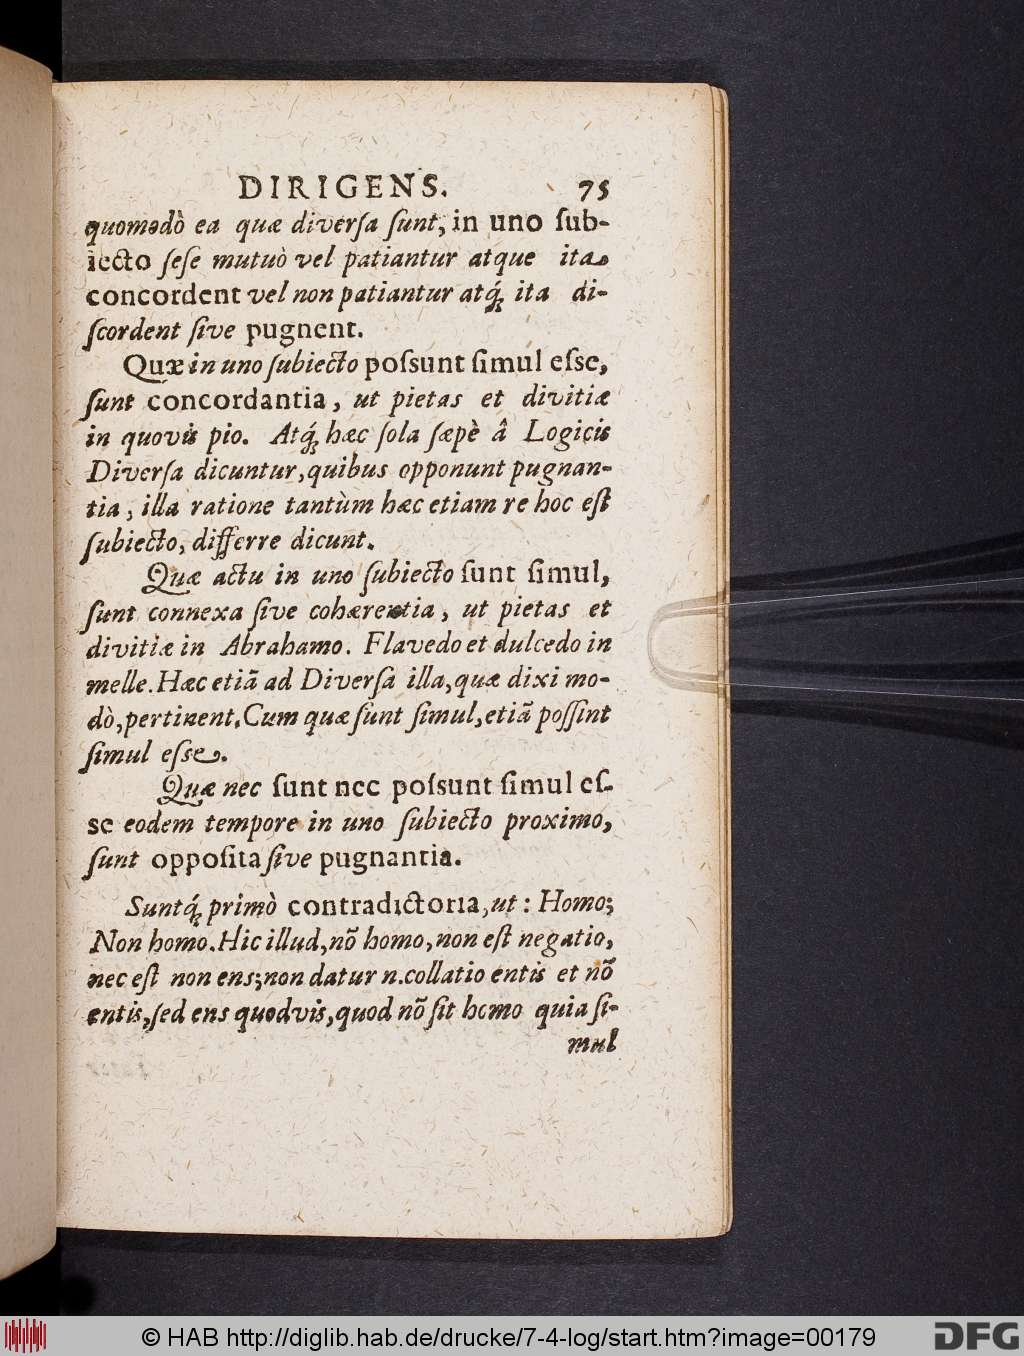 DIRIGENS. 75
quomodò ea quæ diverſa ſunt, in uno ſub-
iecto ſeſe mutuò vel patiantur atque ita
concordent vel non patiantur atq́; ita di-
ſcordent ſive pugnent.
Quæ in uno ſubiecto poſsunt ſimul eſse,
ſunt concordantia, ut pietas et divitiæ
in quovis pio. Atq́; hæc ſola ſæpè â Logicis
Diverſa dicuntur, quibus opponunt pugnan-
tia, illa ratione tantùm hæc etiam re hoc eſt
ſubiecto, differre dicunt.
Quæ actu in uno ſubiecto ſunt ſimul,
ſunt connexa ſive cohærentia, ut pietas et
divitiæ in Abrahamo. Flavedo et dulcedo in
melle. Hæc etiã ad Diverſa illa, quæ dixi mo-
dò, pertinent. Cum quæ ſunt ſimul, etiã poſſint
ſimul eſse.
Quæ nec ſunt nec poſsunt ſimul eſ-
se eodem tempore in uno ſubiecto proximo,
ſunt oppoſita ſive pugnantia.
Suntq́; primò contradictoria, ut: Homo;
Non homo. Hic illud, nõ homo, non eſt negatio,
nec eſt non ens; non datur n. collatio entis et nõ
entis, ſed ens quodvis, quod nõ ſit homo quia ſi-
mul
© HAB http://diglib.hab.de/drucke/7-4-log/start.htm?image=00179 DFG